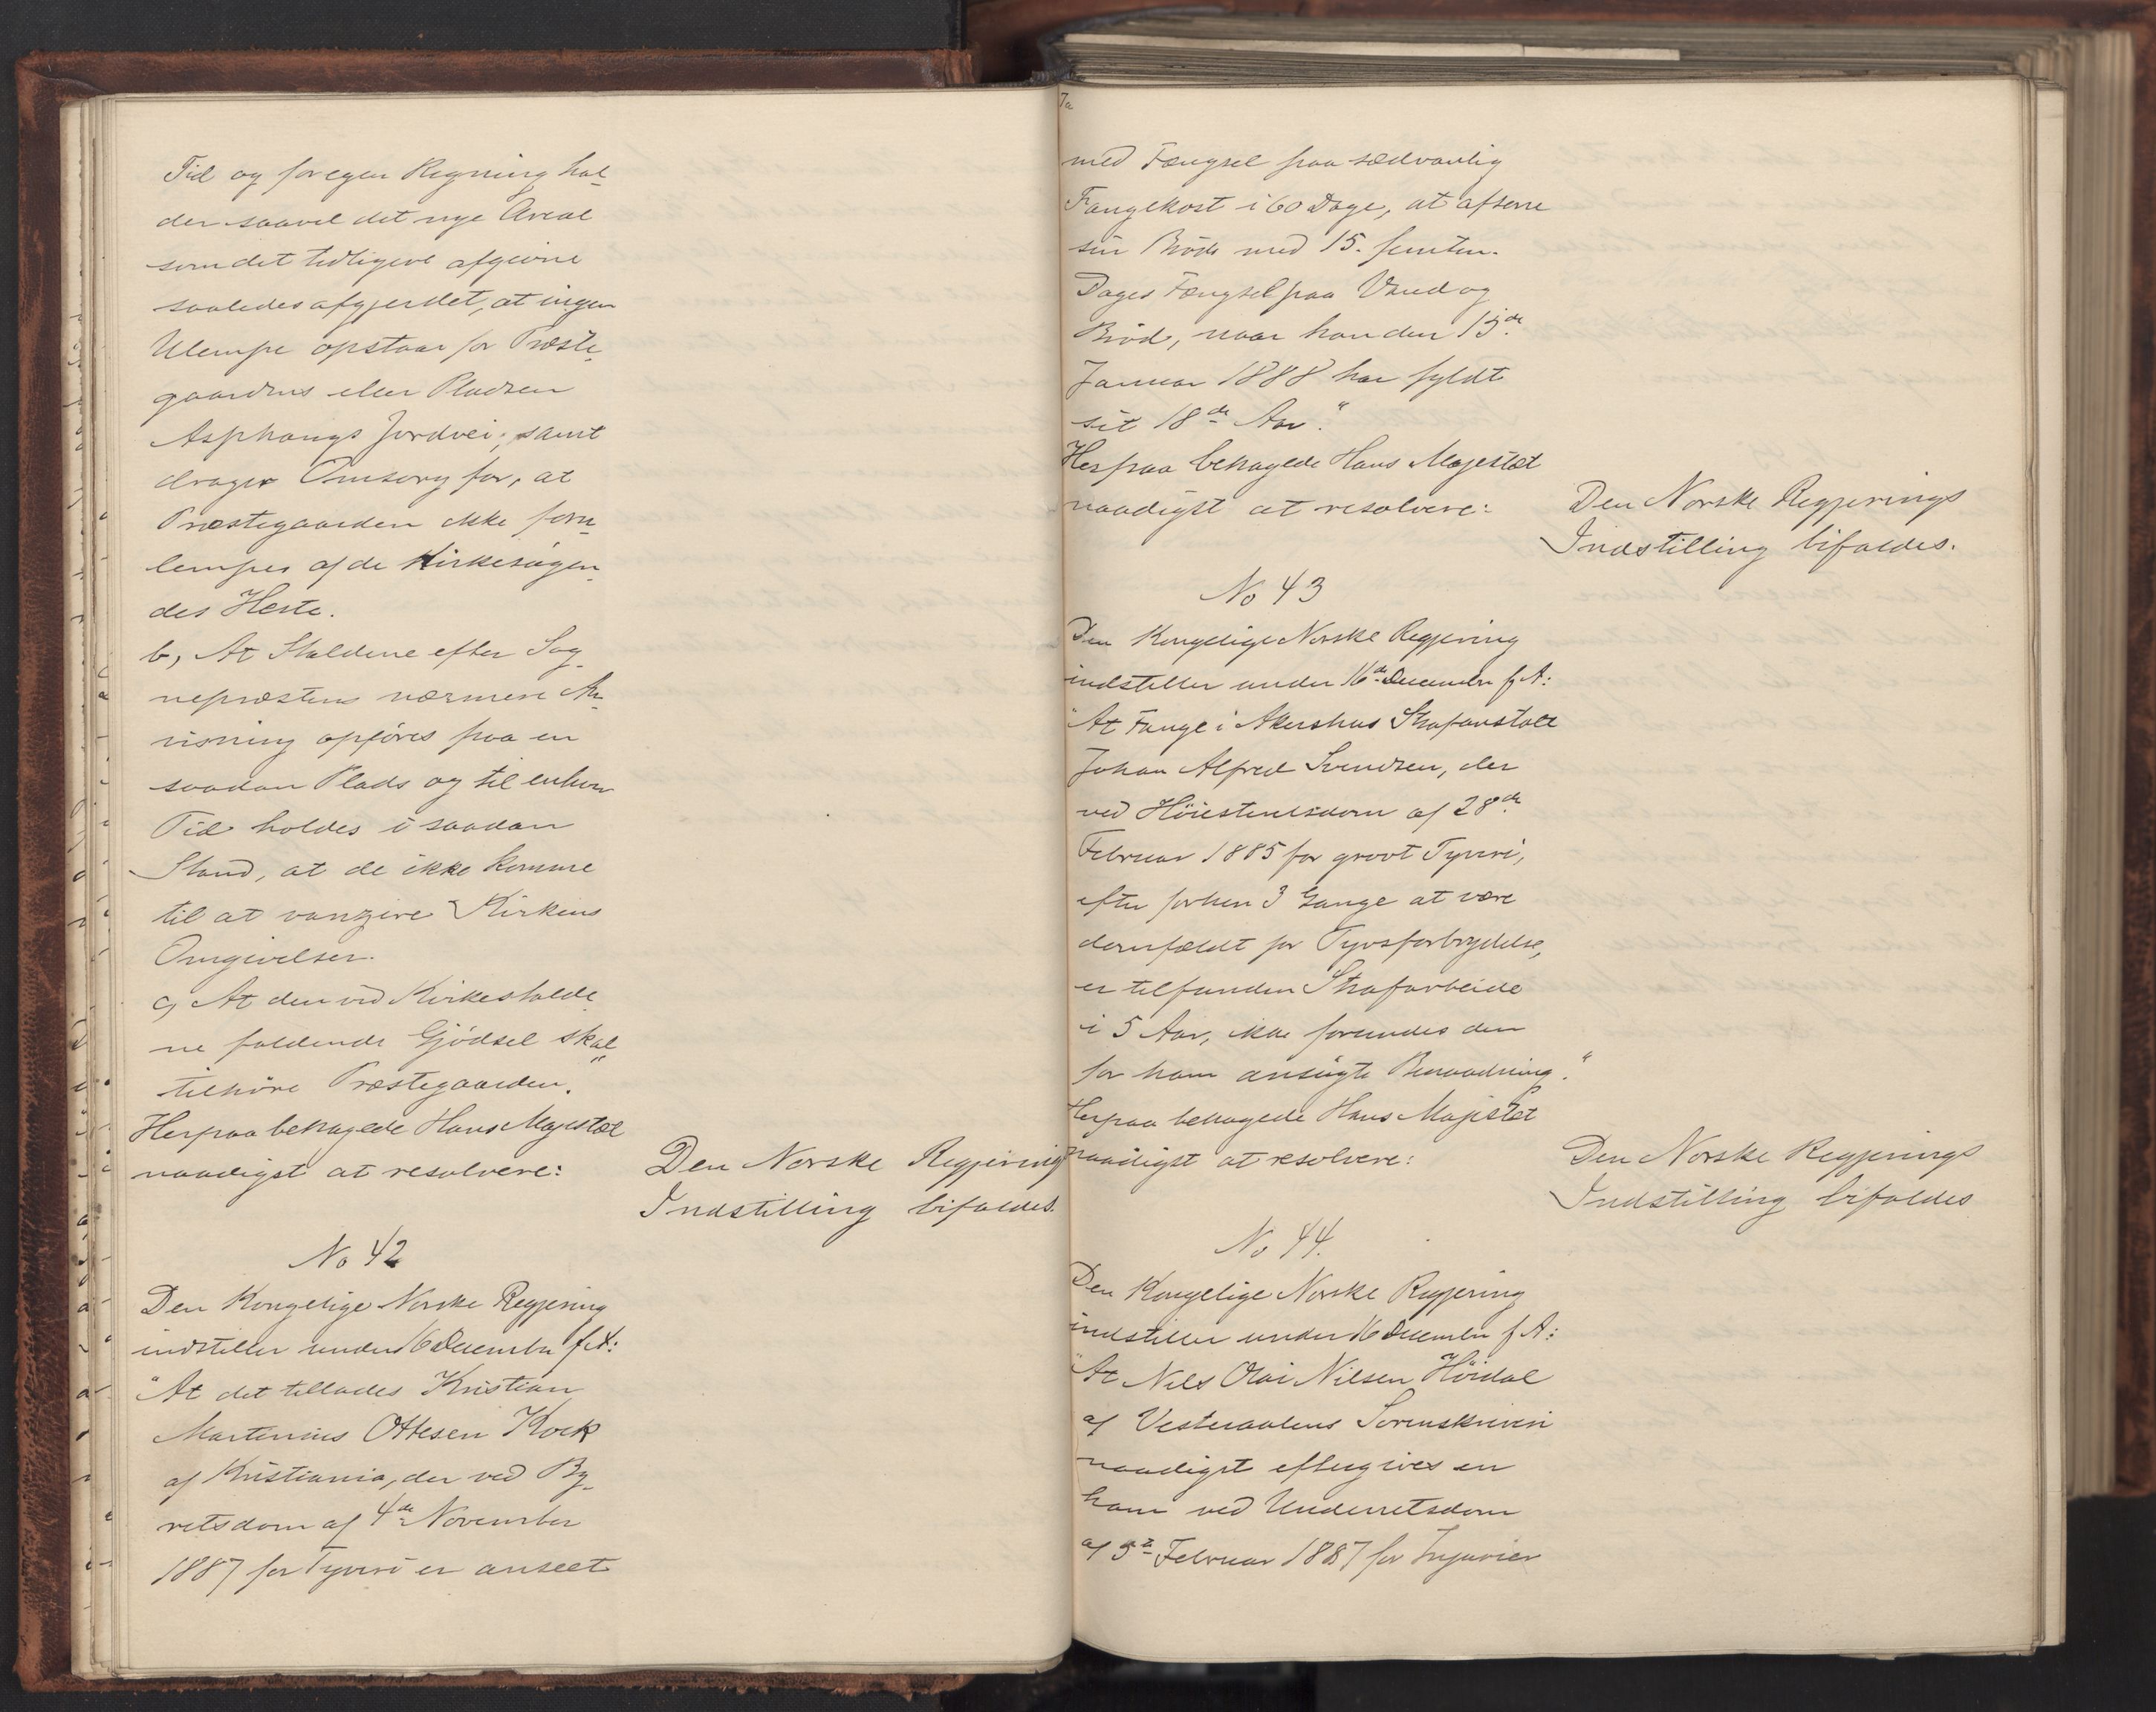 Tid og for egen Regning hol-
der saavel det nye Areal
som det tidligere afgivne
saaledes afgjerdet, at ingen
Ulempe opstaar for Præste-
gaardens eller Pladsen
Asphaugs Jordvei; samt
drager Omsorg for, at
Præstegaarden ikke foru-
lempes af de Kirkesøgen-
des Heste.
b, At Staldene efter Sog-
nepræstens nærmere An-
visning opføres paa en
saadan Plads og til enhver
Tid holdes i saadan
Stand, at de ikke komme
til at vanzire Kirkens
Omgivelser.
c, At den ved Kirkestalde-
ne faldende Gjødsel skal
tilhøre Præstegaarden."
Herpaa behagede Hans Majestæt
naadigst at resolvere:
Den Norske Regjerings
Indstilling bifaldes.
No 42
Den Kongelige Norske Regjering
indstiller under 16 December f A:
"At det tillades Kristian
Martinius Ottesen Kock
af Kristiania, der ved By-
retsdom af 4de November
1887 for Tyveri er anseet
7a
med Fængsel paa sædvanlig
Fangekost i 60 Dage, at afsone
sin Bøde med 15. femten.
Dages Fængsel paa Vand og
Brød, naar han den 15de
Januar 1888 har fyldt
sit 18de Aar."
Herpaa behagede Hans Majestæt
naadigst at resolvere:
Den Norske Regjerings
Indstilling bifaldes.
No 43
Den Kongelige Norske Regjering
indstiller under 16de December f A:
"At Fange i Akershus Strafanstalt
Johan Alfred Svendsen, der
ved Höiesteretsdom af 28de
Februar 1885 for grovt Tyveri,
efter forhen 3 Gange at være
domfældt for Tyvsforbrydelse,
er tilfunden Strafarbeide
i 5 Aar, ikke forundes den
for ham ansøgte Benaadning."
Herpaa behagede Hans Majestæt
naadigst at resolvere:
Den Norske Regjerings
Indstilling bifaldes
No 44.
Den Kongelige Norske Regjering
indstiller under 16 December f A:
"At Nils Olai Nilsen Höidal
af Vesteraalens Sorenskriveri
naadigst eftergives en
ham ved Underretsdom
af 5te Februar 1887 for Injurier